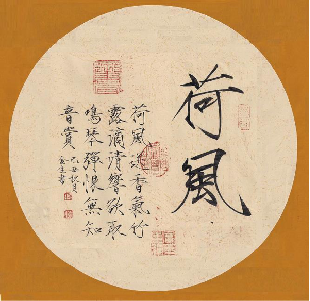 荷風
荷風送香氣竹
露滴清響欲取
鳴琴彈恨無知
音賞